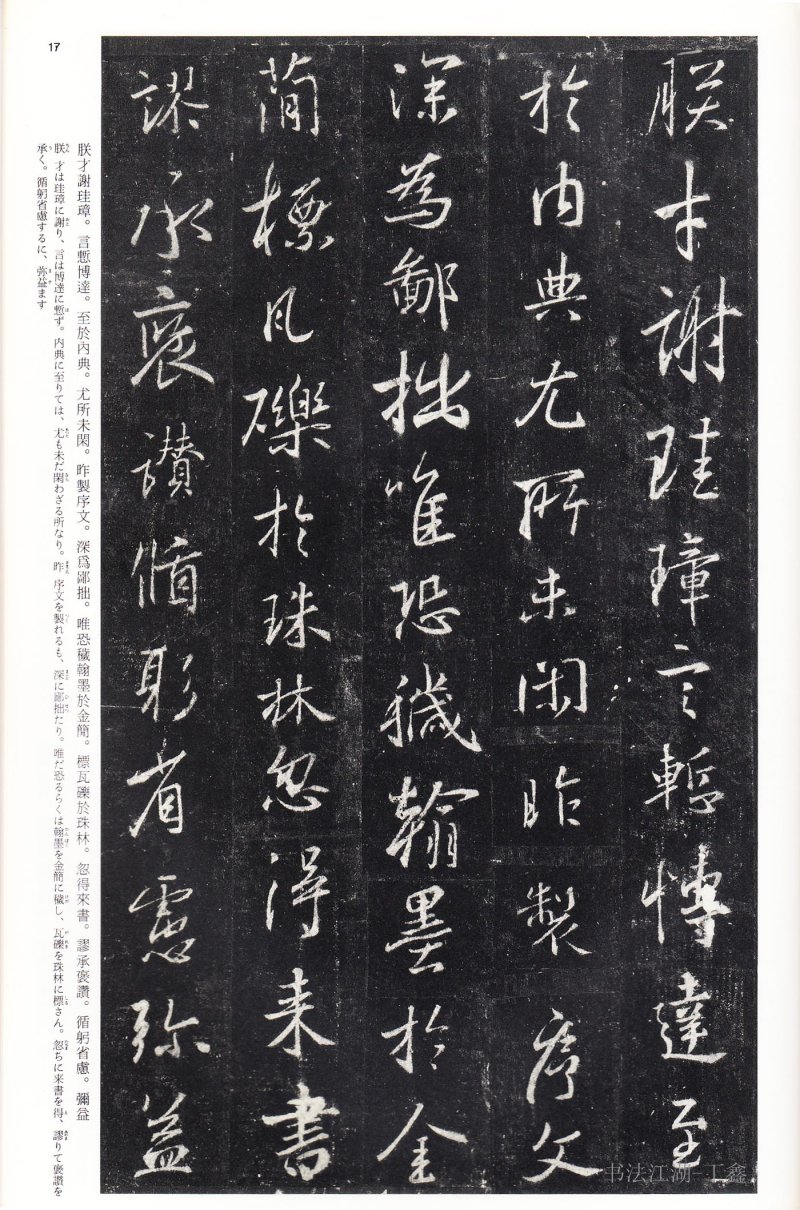 17
朕才謝珪璋言慙博達至
於内典尤所未閑昨製序文
深為鄙拙唯恐穢翰墨於金
蕳標瓦礫於珠林忽得来書
謬承襃讚循躬省慮弥益
朕才謝珪璋。言慙博達。至於內典。尤所未閑。昨製序文。深爲鄙拙。唯恐穢翰墨於金簡。標瓦礫於珠林。忽得來書。謬承褒讚。循躬省慮。彌益
朕才は珪璋に謝り、言は博達に慙ず。内典に至りては、尤も未だ閑わざる所なり。昨序文を製れるも、深に鄙拙たり。唯だ恐るらくは翰墨を金簡に穢し、瓦礫を珠林に標さん。忽ちに来書を得、謬りて褒讚を
承く。循躬省慮するに、弥益ます
书法江湖-丁鑫